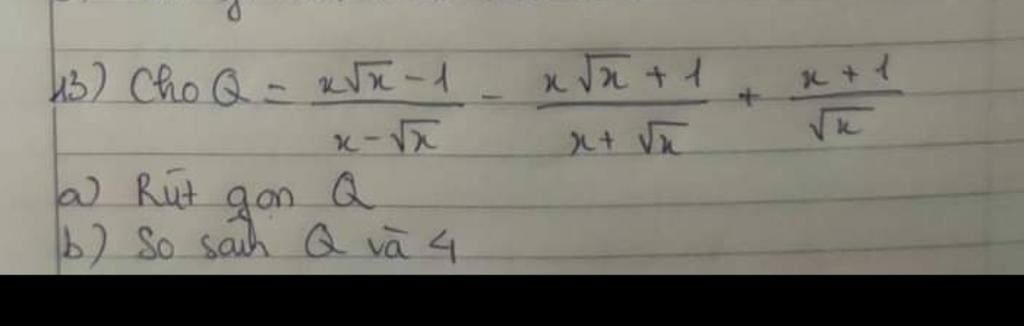 13) Cho Q = \frac{x\sqrt{x} - 1}{x - \sqrt{x}} - \frac{x\sqrt{x} + 1}{x + \sqrt{x}} + \frac{x + 1}{\sqrt{x}}
a) Rút gọn Q
b) So sánh Q và 4